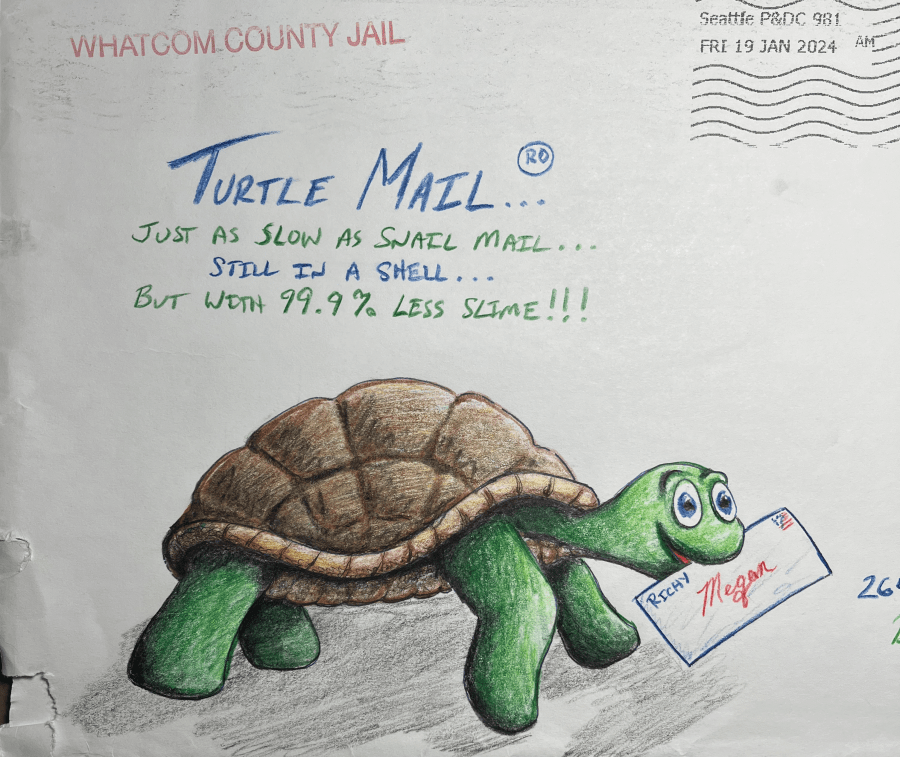 WHATCOM COUNTY JAIL
Seattle P&DC 981
FRI 19 JAN 2024 AM
TURTLE MAIL... RO
JUST AS SLOW AS SNAIL MAIL...
STILL IN A SHELL...
BUT WITH 99.9% LESS SLIME!!!
RICHY
Megan